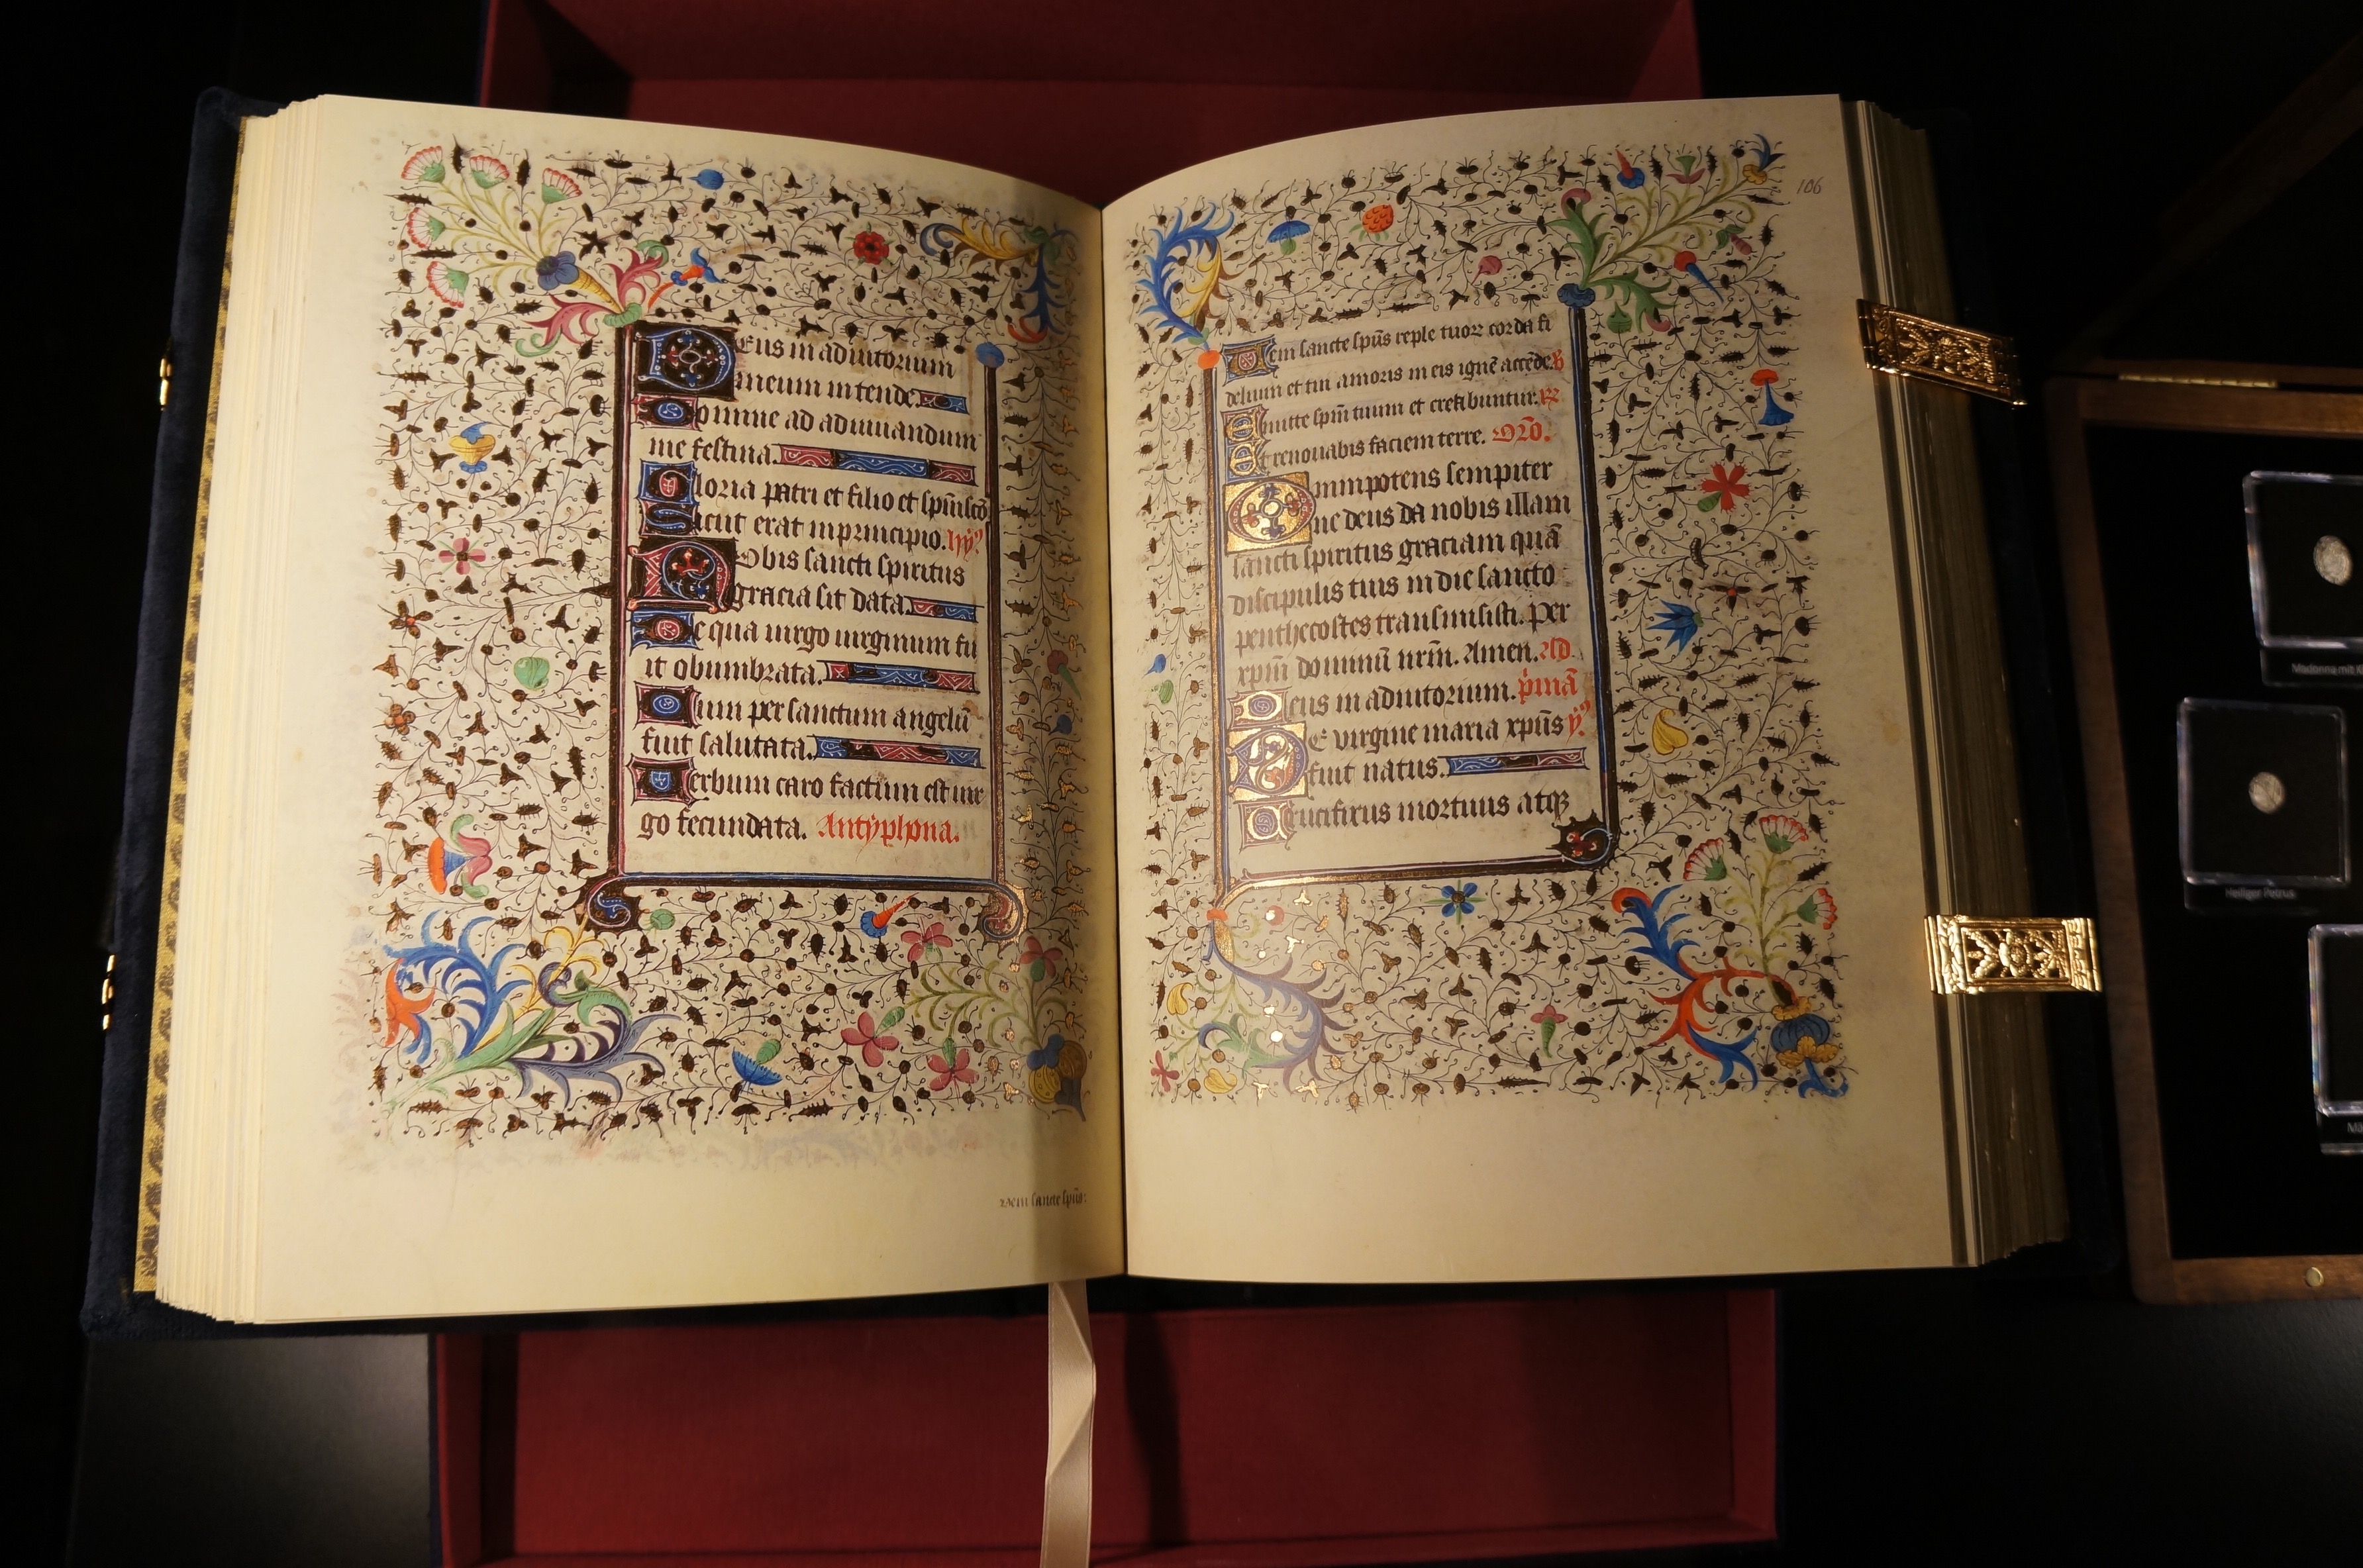 Deus in adiutorium
meum intende.
Domine ad adiuuandum
me festina.
Gloria patri et filio et spūi scō
Sicut erat in principio. hȳ⁹
Nobis sancti spiritus
gracia sit data.
De qua uirgo uirginum fu
it obumbrata.
Cum per sanctum angelū
fuit salutata.
Verbum caro factum est uir
go fecundata. Antyphona.
Veni sancte spūs:
106
Veni sancte spūs reple tuoꝝ corda fi
delium et tui amoris in eis ignē accēde.
Emitte spm̄ tuum et creabuntur. ℟
Et renouabis faciem terre. Orō.
Omnipotens sempiter
ne deus da nobis illam
sancti spiritus graciam quā
discipulis tuis in die sancto
penthecostes transmisisti. Per
xpm̄ dominū nrm̄. Amen. Ad
Deus in adiutorium. pͥmā
De virgine maria xpūs ȳ⁹
fuit natus.
Crucifixus mortuus atqꝫ
Madonna mit K
Heiliger Petrus